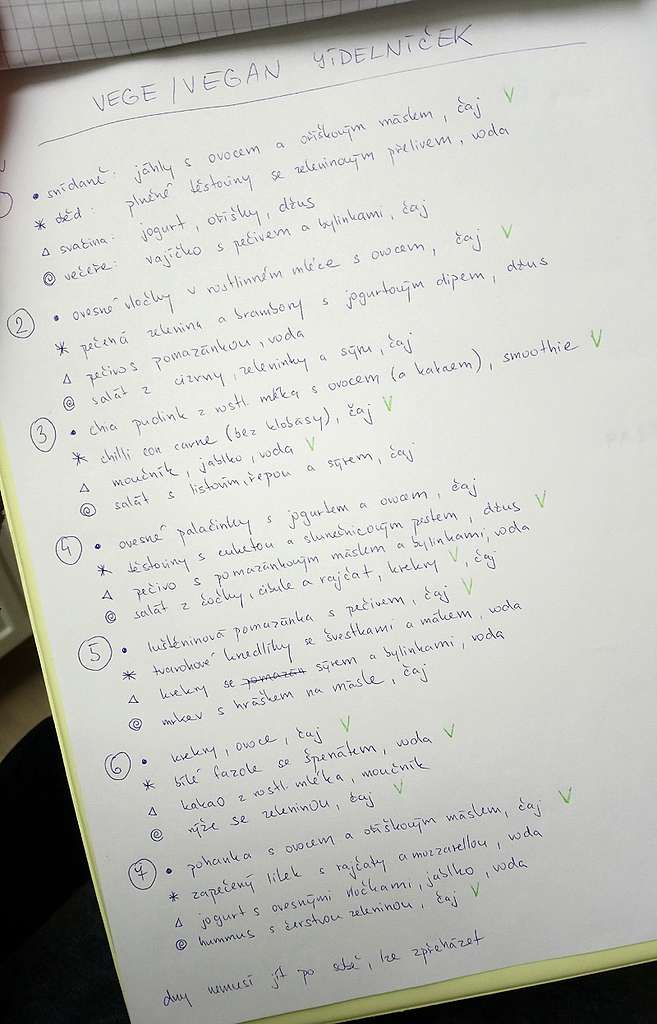 VEGE/VEGAN JÍDELNÍČEK
• snídaně: jáhly s ovocem a oříškovým máslem, čaj V
* oběd: plněné těstoviny se zeleninovým přelivem, voda
△ svačina: jogurt, oříšky, džus
◎ večeře: vajíčko s pečivem a bylinkami, čaj
② • ovesné vločky v rostlinném mléce s ovocem, čaj V
* pečená zelenina a brambory s jogurtovým dipem, džus
△ pečivo s pomazánkou, voda
◎ salát z cizrny, zeleninky a sýru, čaj
③ • chia pudink z rostl. mléka s ovocem (a kakaem), smoothie V
* chilli con carne (bez klobásy), čaj V
△ moučník, jablko, voda V
◎ salát s listovím, řepou a sýrem, čaj
④ • ovesné palačinky s jogurtem a ovocem, čaj
* těstoviny s cuketou a slunečnicovým pestem, džus V
△ pečivo s pomazánkovým máslem a bylinkami, voda
◎ salát z čočky, cibule a rajčat, krekry V, čaj
⑤ • luštěninová pomazánka s pečivem, čaj V
* tvarohové knedlíky se švestkami a mákem, voda
△ krekry se pomazán sýrem a bylinkami, voda
◎ mrkev s hráškem na másle, čaj
⑥ • krekry, ovoce, čaj V
* bílé fazole se špenátem, voda V
△ kakao z rostl. mléka, moučník
◎ rýže se zeleninou, čaj V
⑦ • pohanka s ovocem a oříškovým máslem, čaj V
* zapečený lilek s rajčaty a mozzarellou, voda
△ jogurt s ovesnými vločkami, jablko, voda
◎ hummus s čerstvou zeleninou, čaj V
dny nemusí jít po sobě, lze zpřeházet